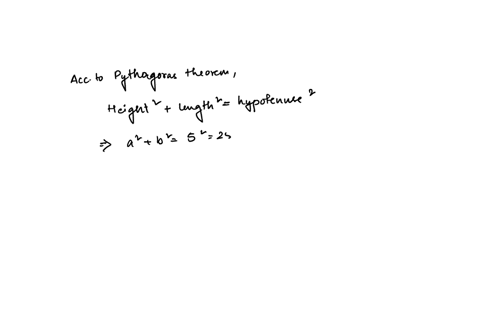 Acc to Pythagoras theorem,
Height² + length² = hypotenuse²
⇒ a² + b² = 5² = 25